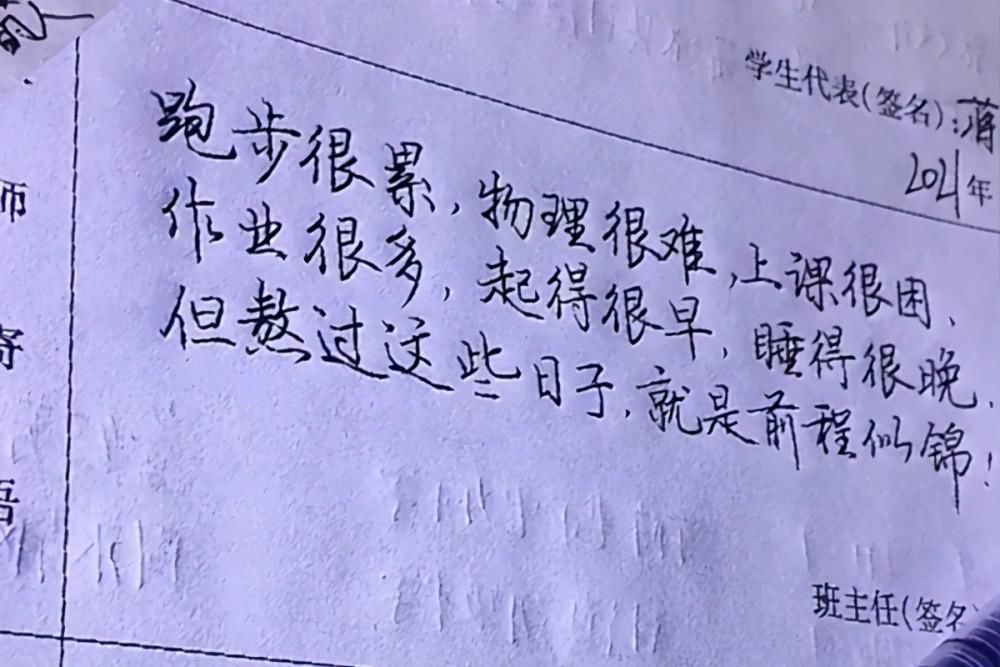 学生代表(签名):蒋
2021年
跑步很累,物理很难,上课很困、
作业很多,起得很早,睡得很晚.
但熬过这些日子,就是前程似锦!
师
寄
语
班主任(签名